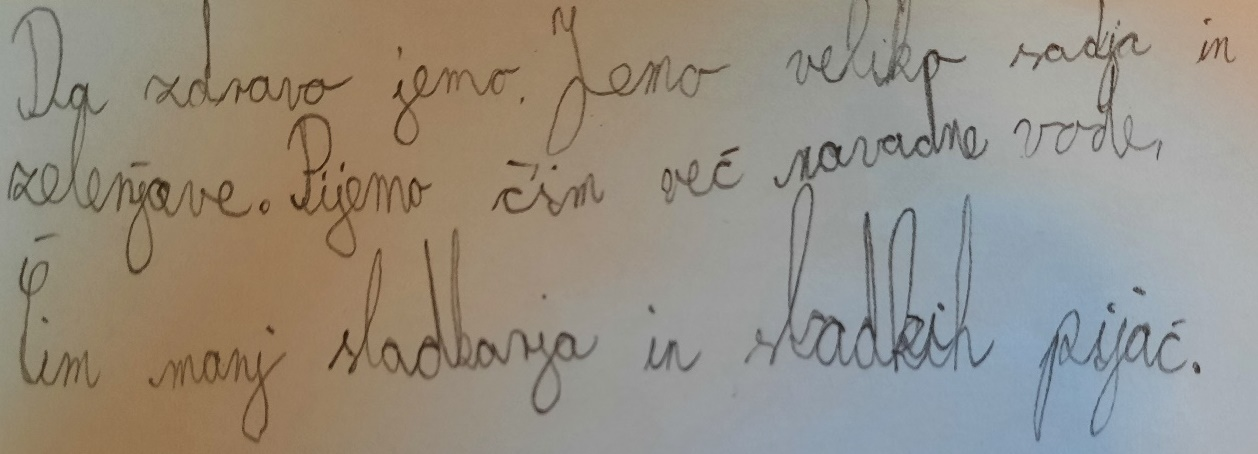 Da zdravo jemo. Jemo veliko sadja in
zelenjave. Pijemo čim več navadne vode,
Čim manj sladkarja in sladkih pijač.